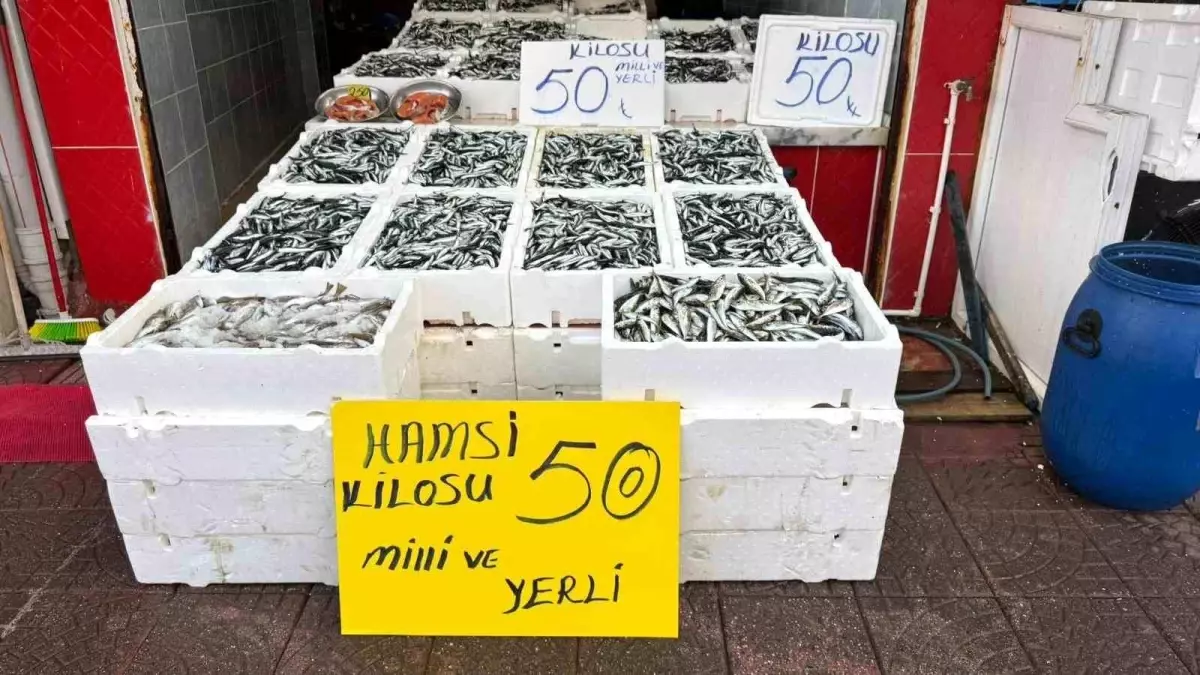 KİLOSU
50 MİLLİ VE
YERLİ
₺
KİLOSU
50 ₺
250
HAMSİ
KİLOSU 50
MİLLİ VE
YERLİ